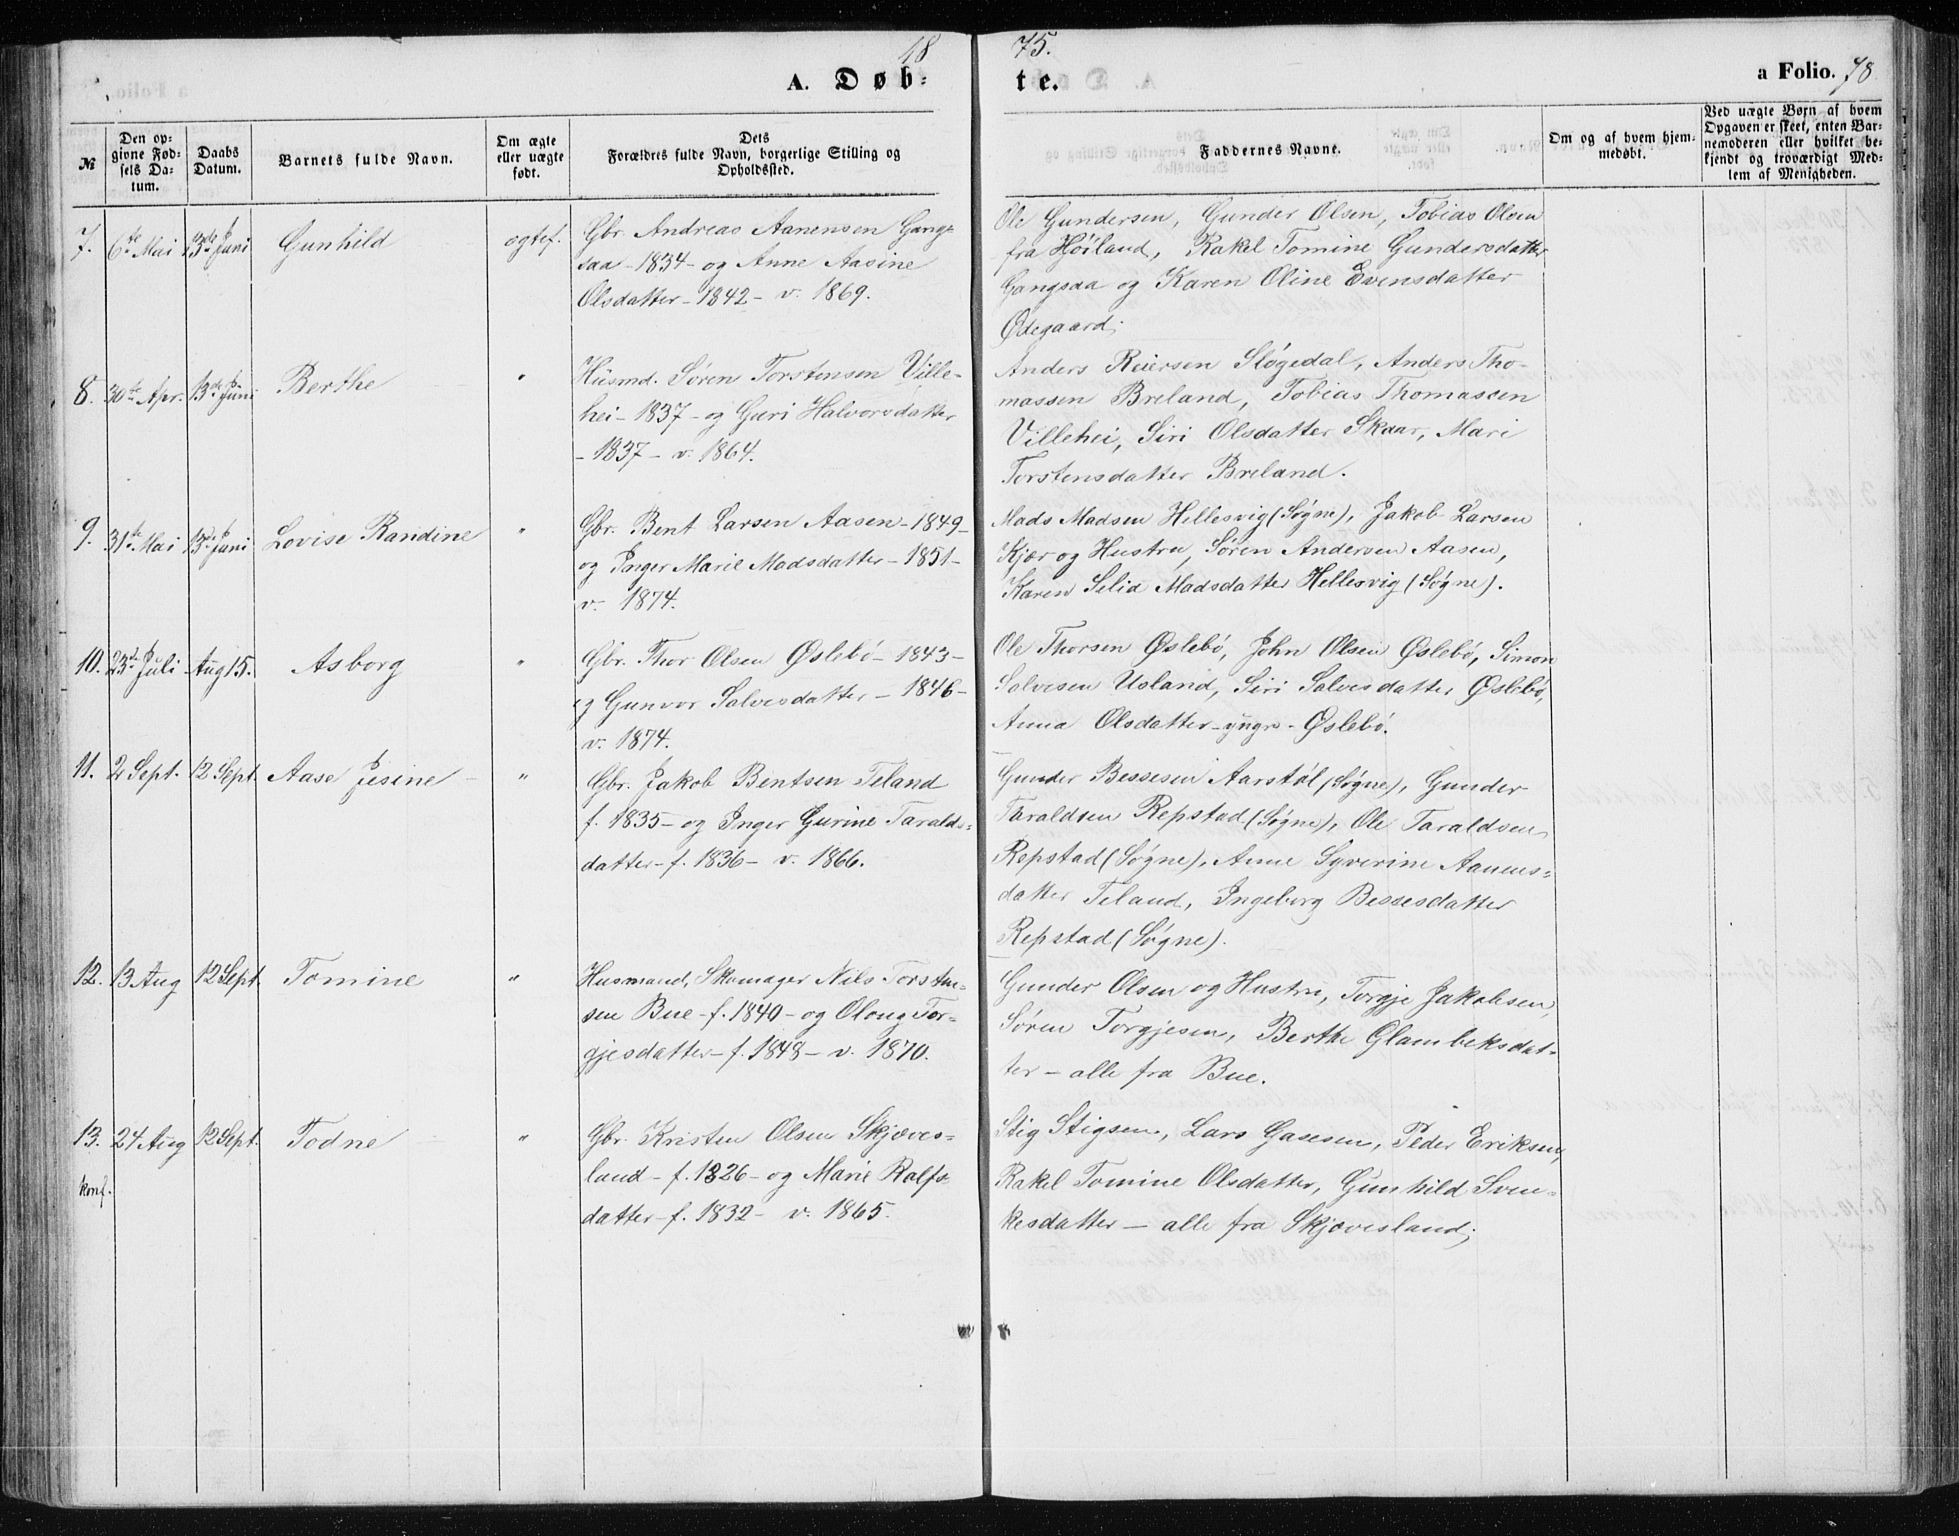 1875.
A. Døbte.
a Folio. 78
№
Den opgivne Fødsels Datum.
Daabs Datum.
Barnets fulde Navn.
Om ægte eller uægte født.
Dets Forældres fulde Navn, borgerlige Stilling og Opholdssted.
Faddernes Navne.
Om og af hvem hjemmedøbt.
Ved uægte Børn af hvem Opgaven er skeet, enten Barnemoderen eller hvilket bekjendt og troværdigt Medlem af Menigheden.
7. 6te Mai 13de Juni Gunhild ægtef.
Gbr. Andreas Aanensen Gang-
saa - 1834 - og Anne Aasine
Olsdatter - 1842 - v. 1869.
Ole Gundersen, Gunder Olsen, Tobias Olsen
fra Høiland, Rakel Tomine Gundersdatter
Gangsaa og Karen Oline Evensdatter
Ødegaard;
8. 30te Apr. 13de Juni Berthe "
Husmd. Søren Torstensen Ville-
hei - 1837 - og Guri Halvorsdatter
- 1837 - v. 1864.
Anders Reiersen Sløgedal, Anders Tho-
massen Breland, Tobias Thomassen
Villehei, Siri Olsdatter Skaar, Mari
Torstensdatter Breland.
9. 31te Mai 13de Juni Lovise Randine "
Gbr. Bent Larsen Aasen - 1849 -
og Inger Marie Madsdatter - 1851 -
v. 1874.
Mads Madsen Hellesvig (Søgne), Jakob Larsen
Kjær og Hustru, Søren Andersen Aasen,
Karen Selia Madsdatter Hellesvig (Søgne).
10. 23de Juli Aug 15. Asborg "
Gbr. Thor Olsen Øslebø - 1843 -
og Gunvor Salvesdatter - 1846 -
v. 1874.
Ole Thorsen Øslebø, John Olsen Øslebø, Simon
Salvesen Usland, Siri Salvesdatter Øslebø,
Anna Olsdatter - yngre - Øslebø.
11. 2 Sept. 12 Sept. Aase Jesine "
Gbr. Jakob Bentsen Teland
f. 1835 - og Inger Gurine Taralds-
datter - f. 1836 - v. 1866.
Gunder Bessesen Aarstøl (Søgne), Gunder
Taraldsen Repstad (Søgne), Ole Taraldsen
Repstad (Søgne), Anne Syverine Aanens-
datter Teland, Ingeborg Bessesdatter
Repstad (Søgne).
12. 13 Aug 12 Sept. Tomine "
Husmand, Skomager Nils Torsten-
sen Bue - f. 1840 - og Oloug Tor-
gjesdatter - f. 1848 - v. 1870.
Gunder Olsen og Hustru, Torgje Jakobsen,
Søren Torgjesen, Berthe Glambeksdat-
ter - alle fra Bue.
13. 24 Aug 12 Sept. Todne "
konf.
Gbr. Kristen Olsen Skjæves-
land - f. 1826 - og Marie Rolfs-
datter - f. 1832 - v. 1865.
Stig Stigsen, Lars Gasesen, Peder Eriksen,
Rakel Tomine Olsdatter, Gunhild Sven-
kesdatter - alle fra Skjævesland;